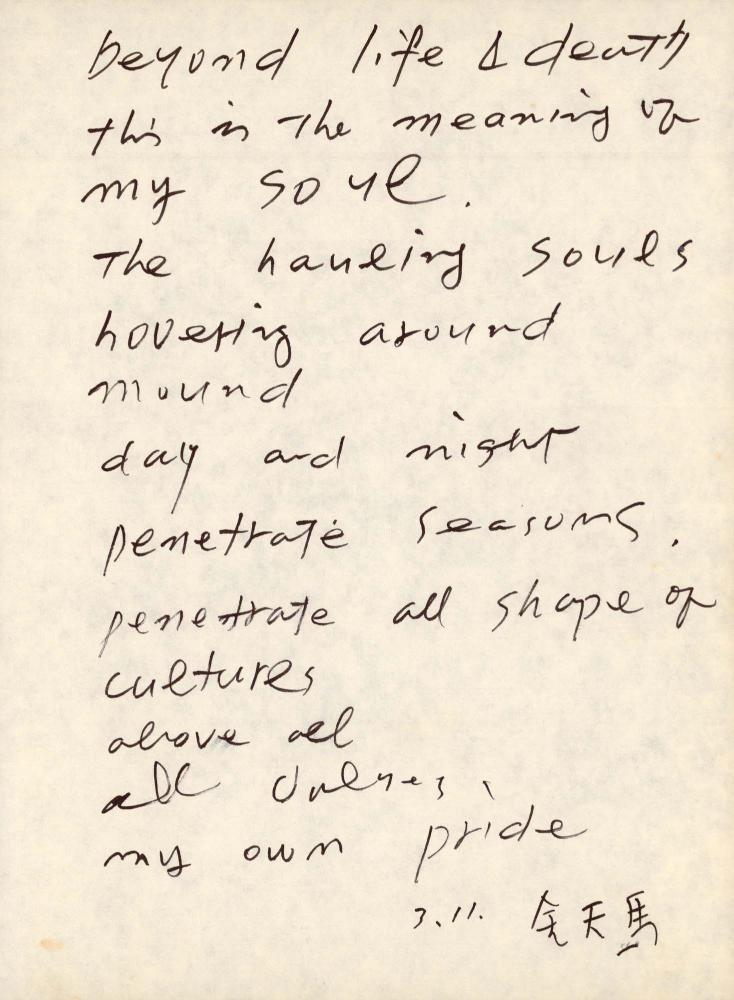 beyond life & death
this is the meaning of
my soul.
The hauling souls
hovering around
mound
day and night
penetrate seasons.
penetrate all shape of
cultures
above all
all values,
my own pride
3.11. 天馬